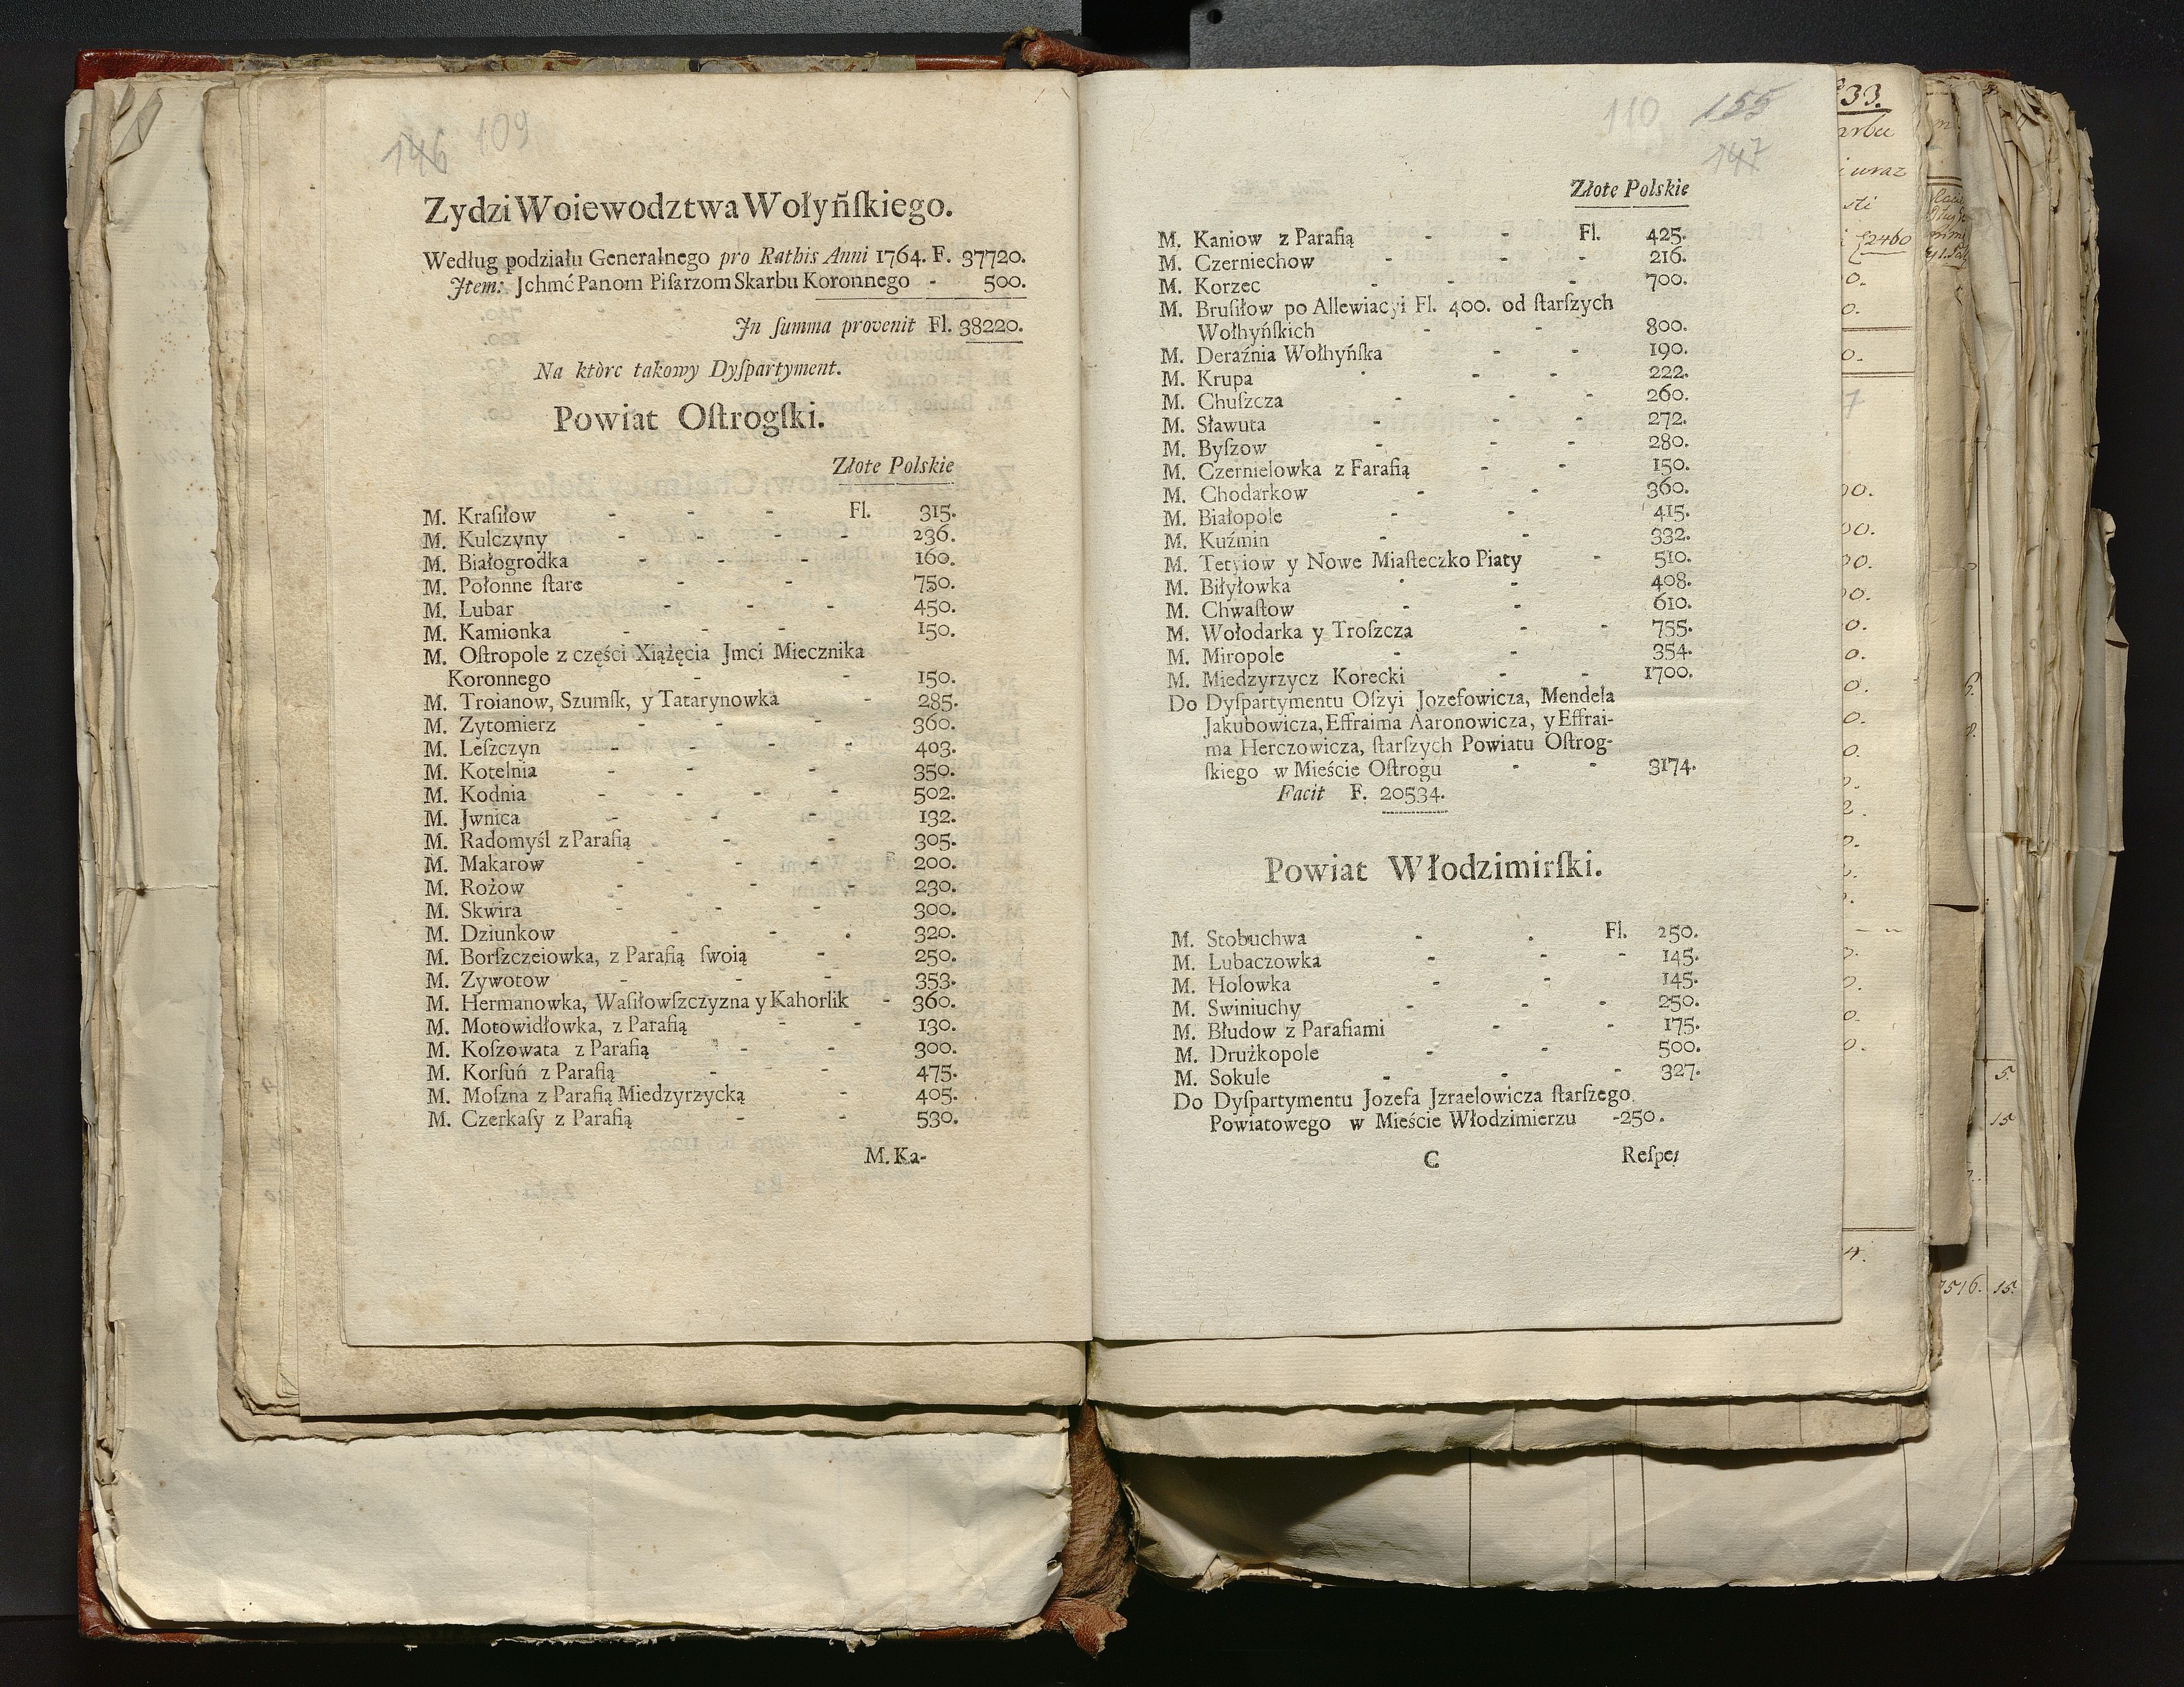 146 109
Zydzi Woiewodztwa Wołyńſkiego.
Według podziału Generalnego pro Rathis Anni 1764. F. 37720.
Jtem: Jchmć Panom Piſarzom Skarbu Koronnego - 500.
Jn ſumma provenit Fl. 38220.
Na ktòrc takowy Dyſpartyment.
Powiat Oſtrogſki.
Złote Polskie
M. Kraſiłow - - - Fl. 315.
M. Kulczyny - - - - 236.
M. Białogrodka - - - 160.
M. Połonne ſtare - - 750.
M. Lubar - - - - 450.
M. Kamionka - - - 150.
M. Oſtropole z części Xiążęcia Jmci Miecznika
Koronnego - - 150.
M. Troianow, Szumſk, y Tatarynowka - 285.
M. Zytomierz - - - 360.
M. Leſzczyn - - - - 403.
M. Kotelnia - - - 350.
M. Kodnia - - - - 502.
M. Jwnica - - - - 132.
M. Radomyśl z Parafią - - 305.
M. Makarow - - - 200.
M. Rożow - - - 230.
M. Skwira - - - 300.
M. Dziunkow - - . 320.
M. Borſzczeiowka, z Parafią ſwoią - 250.
M. Zywotow - - - 353.
M. Hermanowka, Waſiłowſzczyzna y Kahorlik - 360.
M. Motowidłowka, z Parafią - - 130.
M. Koſzowata z Parafią - - 300.
M. Korſuń z Parafią - - 475.
M. Moſzna z Parafią Miedzyrzycką - 405.
M. Czerkaſy z Parafią - - 530.
M. Ka-
110 155
147
Złote Polskie
M. Kaniow z Parafią - - Fl. 425.
M. Czerniechow - - - 216.
M. Korzec - - - 700.
M. Bruſiłow po Allewiacyi Fl. 400. od ſtarſzych
Wołhyńſkich - - 800.
M. Deraźnia Wołhyńſka - - 190.
M. Krupa - - - 222.
M. Chuſzcza - - - 260.
M. Sławuta - - - 272.
M. Byſzow - - - 280.
M. Czernielowka z Farafią - - 150.
M. Chodarkow - - 360.
M. Białopole - - 415.
M. Kuźmin - - 332.
M. Tetyiow y Nowe Miaſteczko Piaty - 510.
M. Biłyłowka - - 408.
M. Chwaſtow - - 610.
M. Wołodarka y Troſzcza - - 755.
M. Miropole - - 354.
M. Miedzyrzycz Korecki - - 1700.
Do Dyſpartymentu Oſzyi Jozefowicza, Mendela
Jakubowicza, Effraima Aaronowicza, y Effrai-
ma Herczowicza, ſtarſzych Powiatu Oſtrog-
ſkiego w Mieście Oſtrogu - - 3174.
Facit F. 20534.
Powiat Włodzimirſki.
M. Stobuchwa - . Fl. 250.
M. Lubaczowka - - - 145.
M. Holowka - - 145.
M. Swiniuchy - - - 250.
M. Błudow z Parafiami - - 175.
M. Drużkopole - - 500.
M. Sokule - - - 327.
Do Dyſpartymentu Jozefa Jzraelowicza ſtarſzego
Powiatowego w Mieście Włodzimierzu -250.
C Reſpe,
33.
2460
7516. 15.